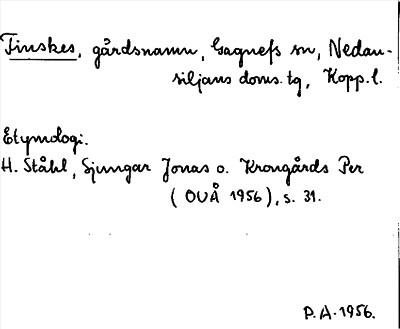 Finskes, gårdsnamn, Gagnefs sn, Nedan-
siljans doms.tg, Kopp.l.
Etymologi.
H. Ståhl, Sjungar Jonas o. Krongårds Per
(OUÅ 1956), s. 31.
P.A. 1956.